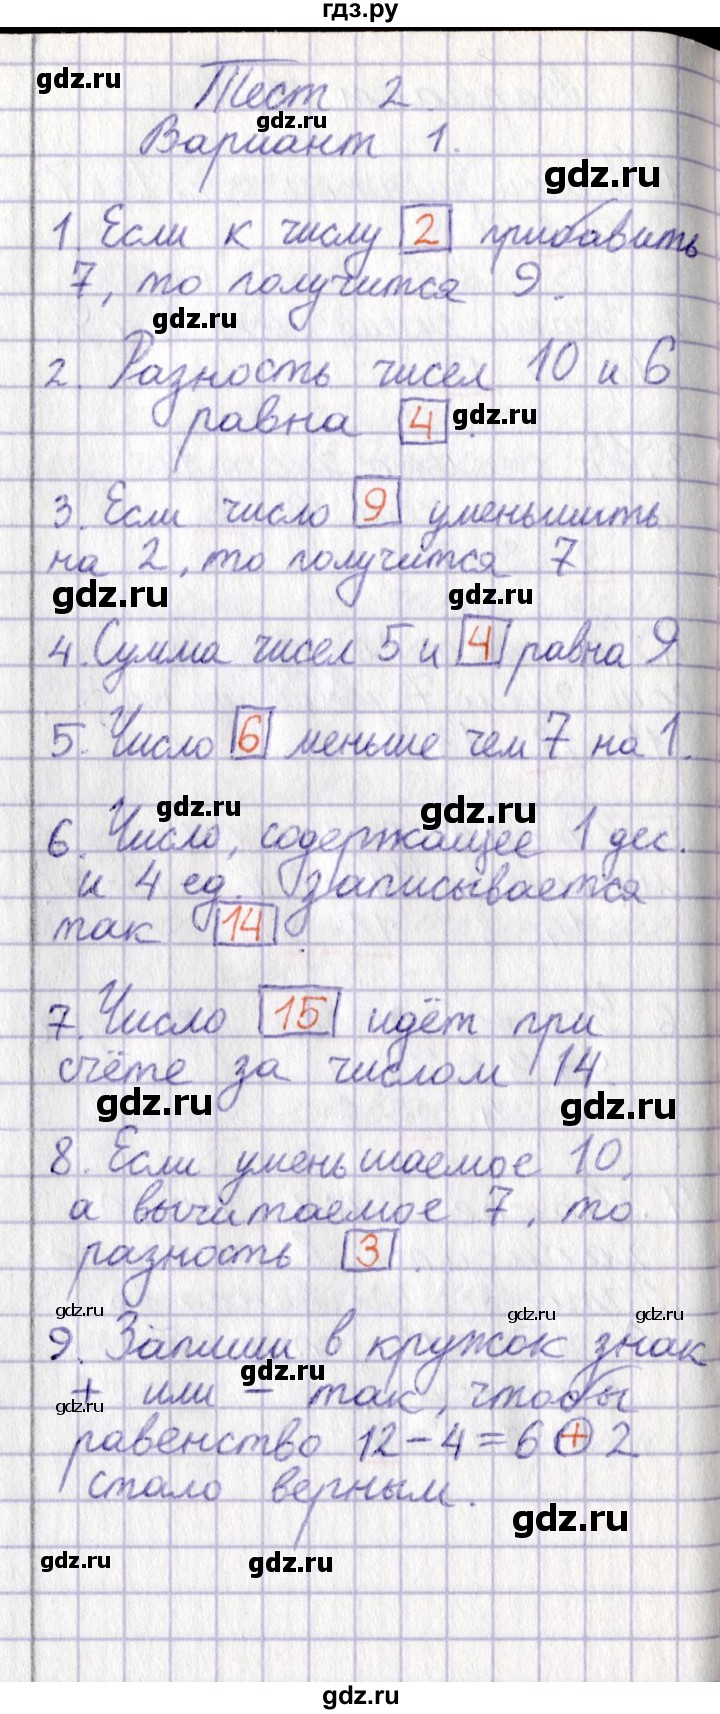 гдз.ру
gdz.ru
Тест 2.
gdz.ru
Вариант 1.
gdz.ru
1. Если к числу 2 прибавить
7, то получится 9.
gdz.ru
2. Разность чисел 10 и 6
равна 4.
gdz.ru
3. Если число 9 уменьшить
на 2, то получится 7
gdz.ru
gdz.ru
4. Сумма чисел 5 и 4 равна 9
5. Число 6 меньше чем 7 на 1.
gdz.ru
gdz.ru
6. Число, содержащее 1 дес.
и 4 ед. записывается
так 14
7. Число 15 идёт при
счёте за числом 14.
gdz.ru
gdz.ru
8. Если уменьшаемое 10,
а вычитаемое 7, то
разность 3.
gdz.ru
gdz.ru
gdz.ru
9. Запиши в кружок знак
gdz.ru
+ или - так, чтобы
gdz.ru
равенство 12-4=6+2
стало верным.
gdz.ru
gdz.ru
gdz.ru
gdz.ru